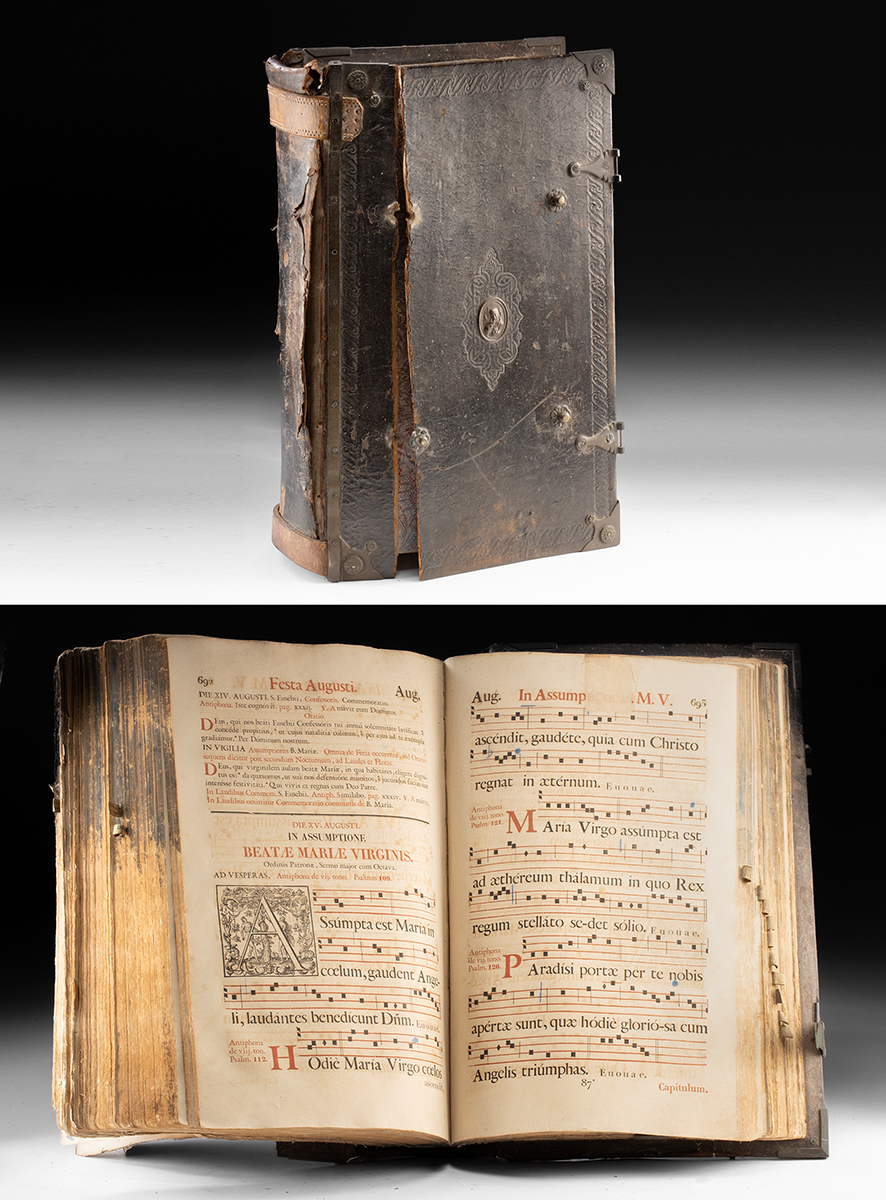 692
Festa Augusti.
Aug.
DIE XIV. AUGUSTI. S. Eusebii, Confessoris. Commemoratio.
Antiphona. Iste cognovit. pag. xxxij. V. Amavit eum Dominus.
Oratio.
DEus, qui nos beáti Eusebii Confessóris tui ánnuâ solemnitáte lætíficas:
concéde propítius, ut cujus natalítia cólimus, per ejus ad te exémpla
gradiámur. Per Dominum nostrum.
IN VIGILIA Assumptionis B. Mariæ. Omnia de Feria occurrente, ad Oratio
sequens dicitur post secundum Nocturnum, ad Laudes et Horas.
DEus, qui virginálem aulam beátæ Maríæ, in qua habitáres, elígere dignátus
es: da quæsumus, ut suâ nos defensióne munítos, jucúndos fácias suæ
interésse festivitáti. Qui vivis et regnas cum Deo Patre.
In Laudibus Commem. S. Eusebii. Antiph. Similabo. pag. xxxiv. V. Amavit.
In Laudibus omittitur Commemoratio communis de B. Maria.
DIE XV. AUGUSTI.
IN ASSUMPTIONE
BEATÆ MARIÆ VIRGINIS.
Ordinis Patronæ, Semo major cum Octava.
AD VESPERAS. Antiphona de vij. tono. Psalmus 109.
ASsúmpta est María in
cœlum, gaudent Ange-
li, laudántes benedícunt Dñm. Euouae.
Antiphona
de viij. ton.
Psalm. 112.
HOdiè María Virgo cœlos
ascendit
Aug.
In Assump M. V.
693
ascéndit, gaudéte, quia cum Christo
regnat in ætérnum. Euouae.
Antiphona
de viij. tono.
Psalm. 121.
MAria Virgo assúmpta est
ad æthéreum thálamum in quo Rex
regum stelláto se-det sólio. Euouae.
Antiphona
de vij. tono.
Psalm. 126.
PAradísi portæ per te nobis
apértæ sunt, quæ hódiè glorió-sa cum
Angelis triúmphas. Euouae.
87*
Capitulum.